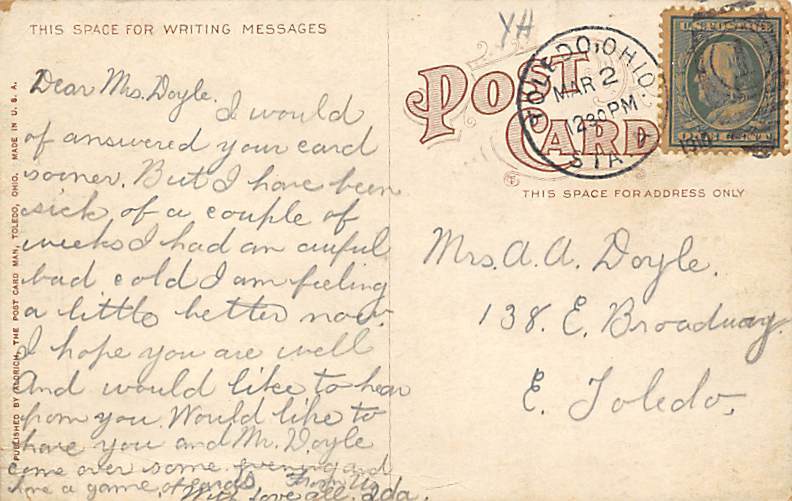 THIS SPACE FOR WRITING MESSAGES
Dear Mrs. Doyle.
I would
of answered your card
sooner. But I have been
sick of a couple of
weeks I had an awful
bad cold I am feeling
a little better now.
I hope you are well
And would like to hear
from you. Would like to
have you and Mr. Doyle
come over some evening and
have a game of cards. From Us
With love all. Ada.
PUBLISHED BY ALDRICH, THE POST CARD MAN, TOLEDO, OHIO. MADE IN U. S. A.
YH
POST
CARD
TOLEDO, OHIO.
MAR 2
1230 PM
STA. A
1910
U.S. POSTAGE
THIS SPACE FOR ADDRESS ONLY
Mrs. A. A. Doyle.
138. E. Broadway.
E. Toledo.